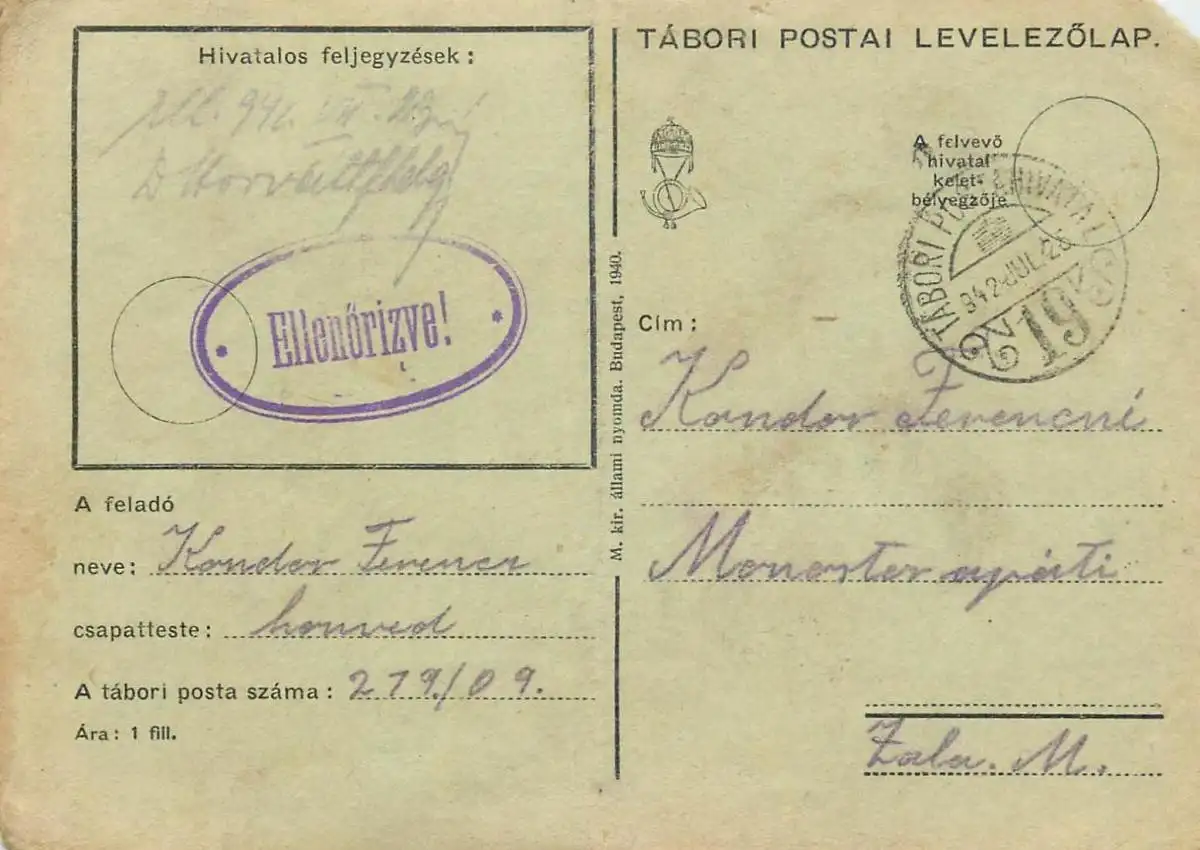 Hivatalos feljegyzések:
Ellenőrizve!
A feladó
neve: Kondor Ferencz
csapatteste: honvéd
A tábori posta száma: 219./09.
Ára: 1 fill.
M. kir. állami nyomda. Budapest, 1940.
TÁBORI POSTAI LEVELEZŐLAP.
A felvevő
hivatal
kelet-
bélyegzője
TÁBORI POSTAHIVATAL
942 JUL 2
219
Cím:
Kondor Ferencné
Monostor apáti
Zala. M.